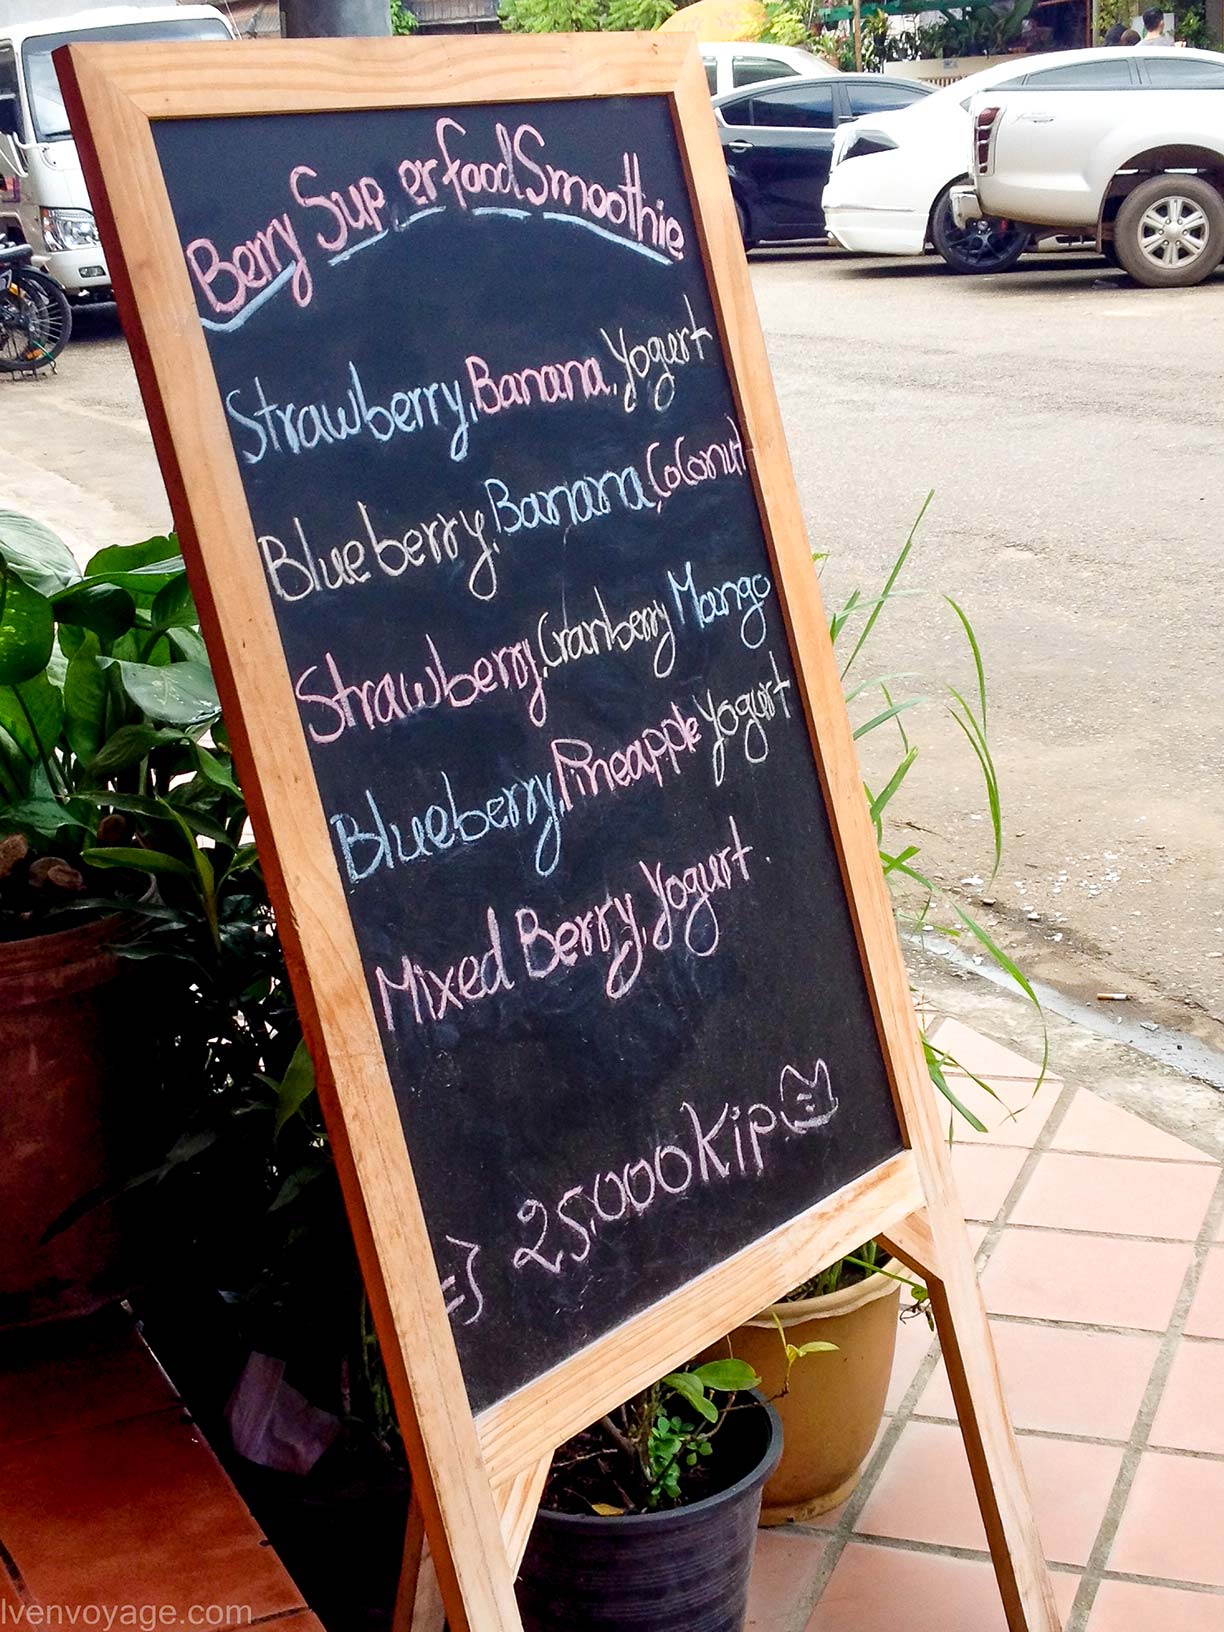 Berry Superfood Smoothie
Strawberry, Banana, Yogurt
Blueberry, Banana, Coconut
Strawberry, Cranberry Mango
Blueberry, Pineapple Yogurt
Mixed Berry, Yogurt.
=> 25,000 Kip
lvenvoyage.com